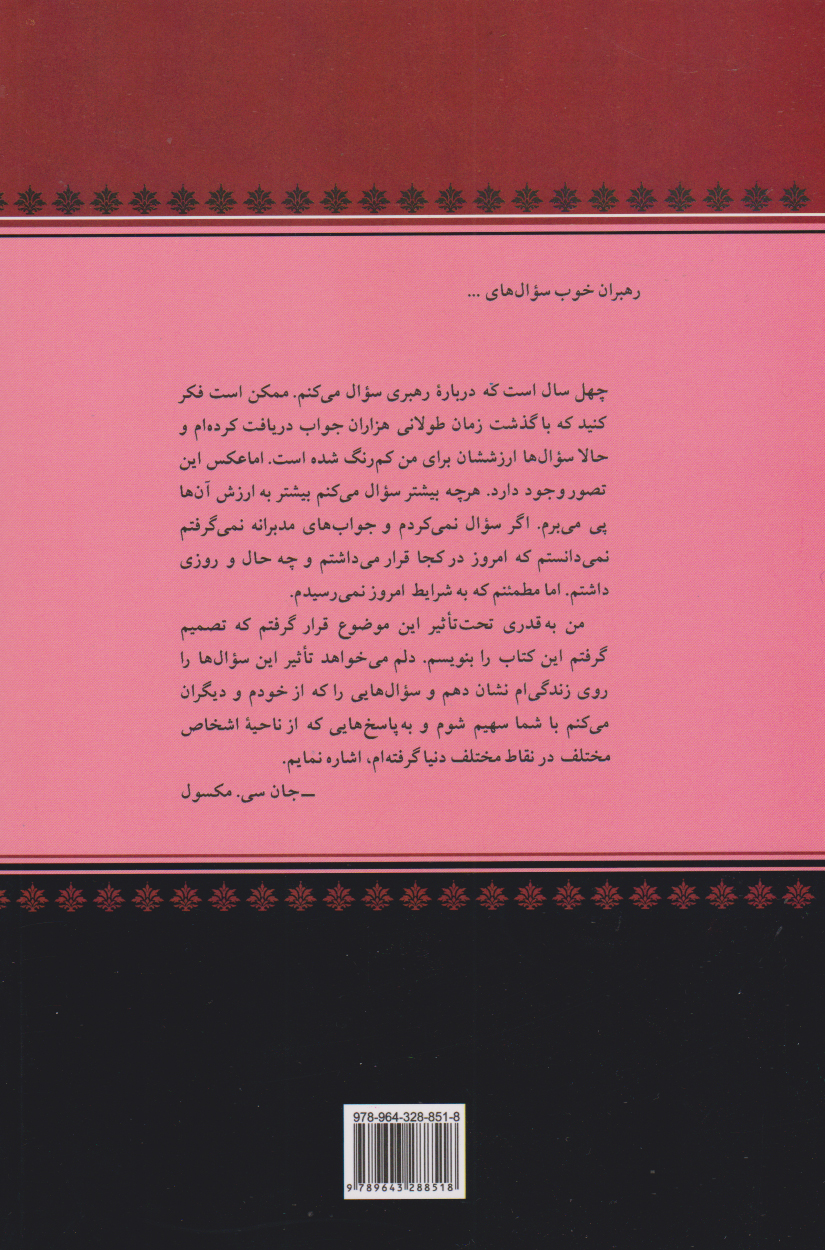 رهبران خوب سؤال‌های ...
چهل سال است که دربارهٔ رهبری سؤال می‌کنم. ممکن است فکر
کنید که با گذشت زمان طولانی هزاران جواب دریافت کرده‌ام و
حالا سؤال‌ها ارزششان برای من کم‌رنگ شده است. اما عکس این
تصور وجود دارد. هرچه بیشتر سؤال می‌کنم بیشتر به ارزش آن‌ها
پی می‌برم. اگر سؤال نمی‌کردم و جواب‌های مدبرانه نمی‌گرفتم
نمی‌دانستم که امروز در کجا قرار می‌داشتم و چه حال و روزی
داشتم. اما مطمئنم که به شرایط امروز نمی‌رسیدم.
من به قدری تحت‌تأثیر این موضوع قرار گرفتم که تصمیم
گرفتم این کتاب را بنویسم. دلم می‌خواهد تأثیر این سؤال‌ها را
روی زندگی‌ام نشان دهم و سؤال‌هایی را که از خودم و دیگران
می‌کنم با شما سهیم شوم و به پاسخ‌هایی که از ناحیهٔ اشخاص
مختلف در نقاط مختلف دنیا گرفته‌ام، اشاره نمایم.
ــ جان سی. مکسول
978-964-328-851-8
9 789643 288518